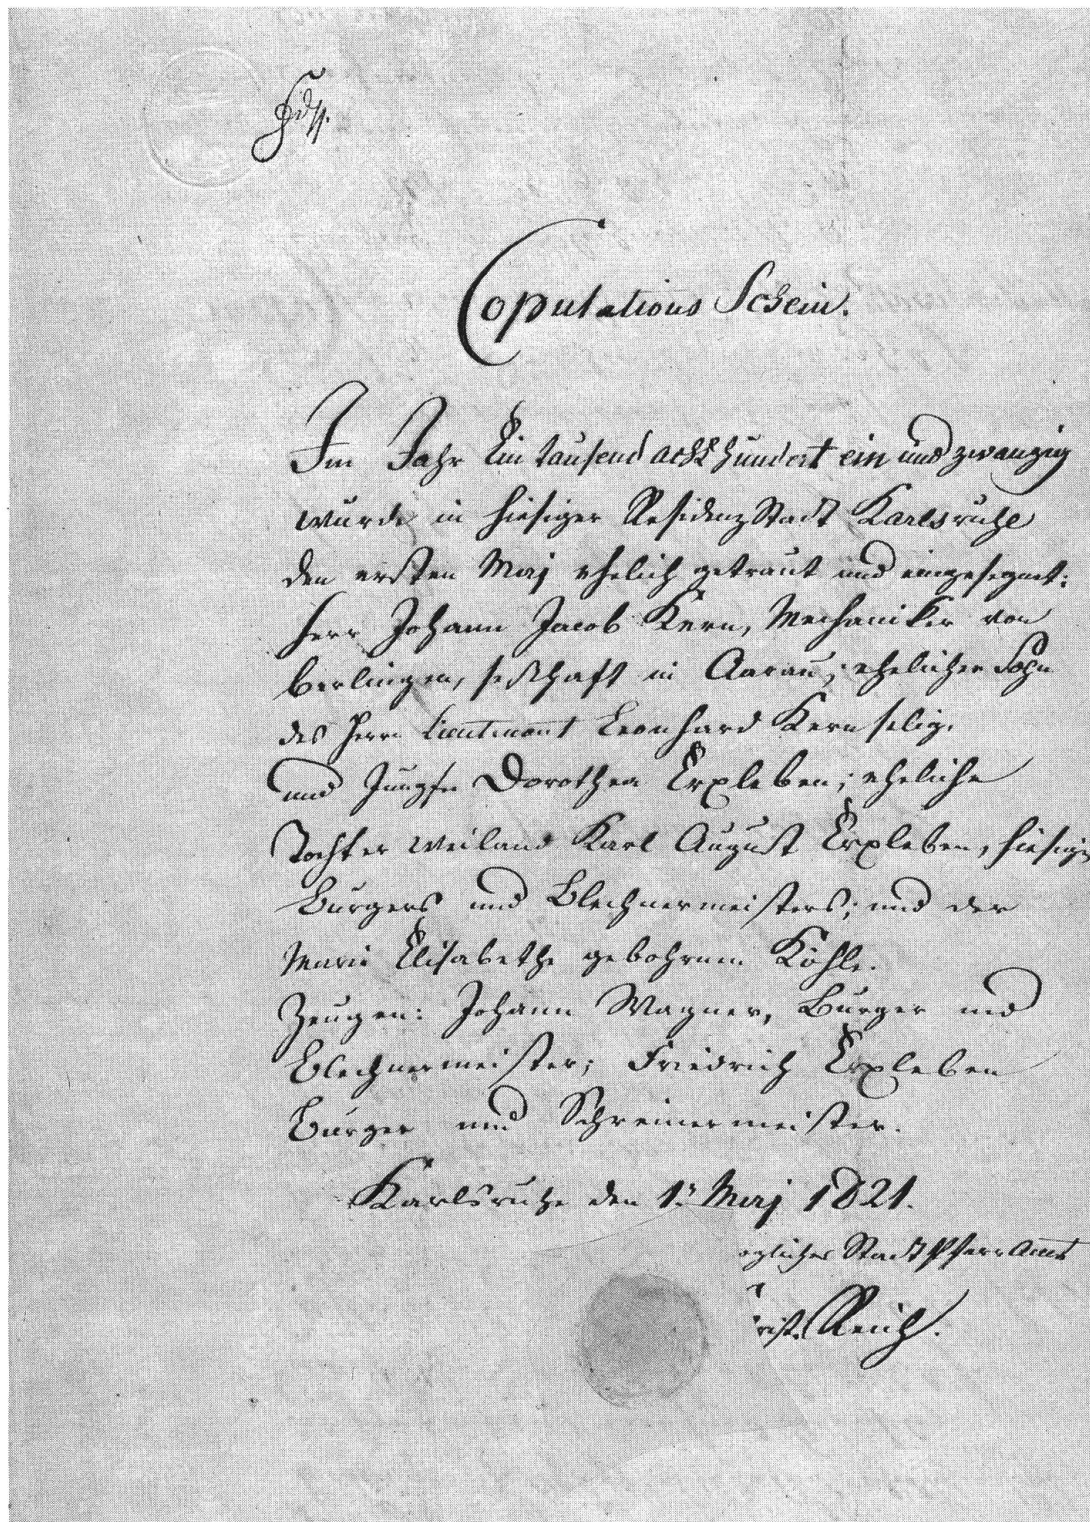 Copulations Schein.
Im Jahr Ein tausend acht hundert ein und zwanzig
wurde in hiesiger Residenz Stadt Karlsruhe
den ersten Maj ehelich getraut und eingesegnet:
Herr Johann Jacob Kern, Mechaniker von
Berlingen, seßhaft in Aarau, ehelicher Sohn
des Herrn Lieutmant Leonhard Kern selig.
und Jungfr Dorothea Erxleben; eheliche
Tochter weiland Karl August Erxleben, hiesige
Burgers und Blechnermeisters; und der
Marie Elisabethe gebohrnen Köhle.
Zeugen: Johann Wagner, Burger und
Blechnermeister; Friedrich Erxleben
Burger und Schreinermeister.
Karlsruhe den 1. Maj 1821.
ogliches Stadt Pfarr Amt